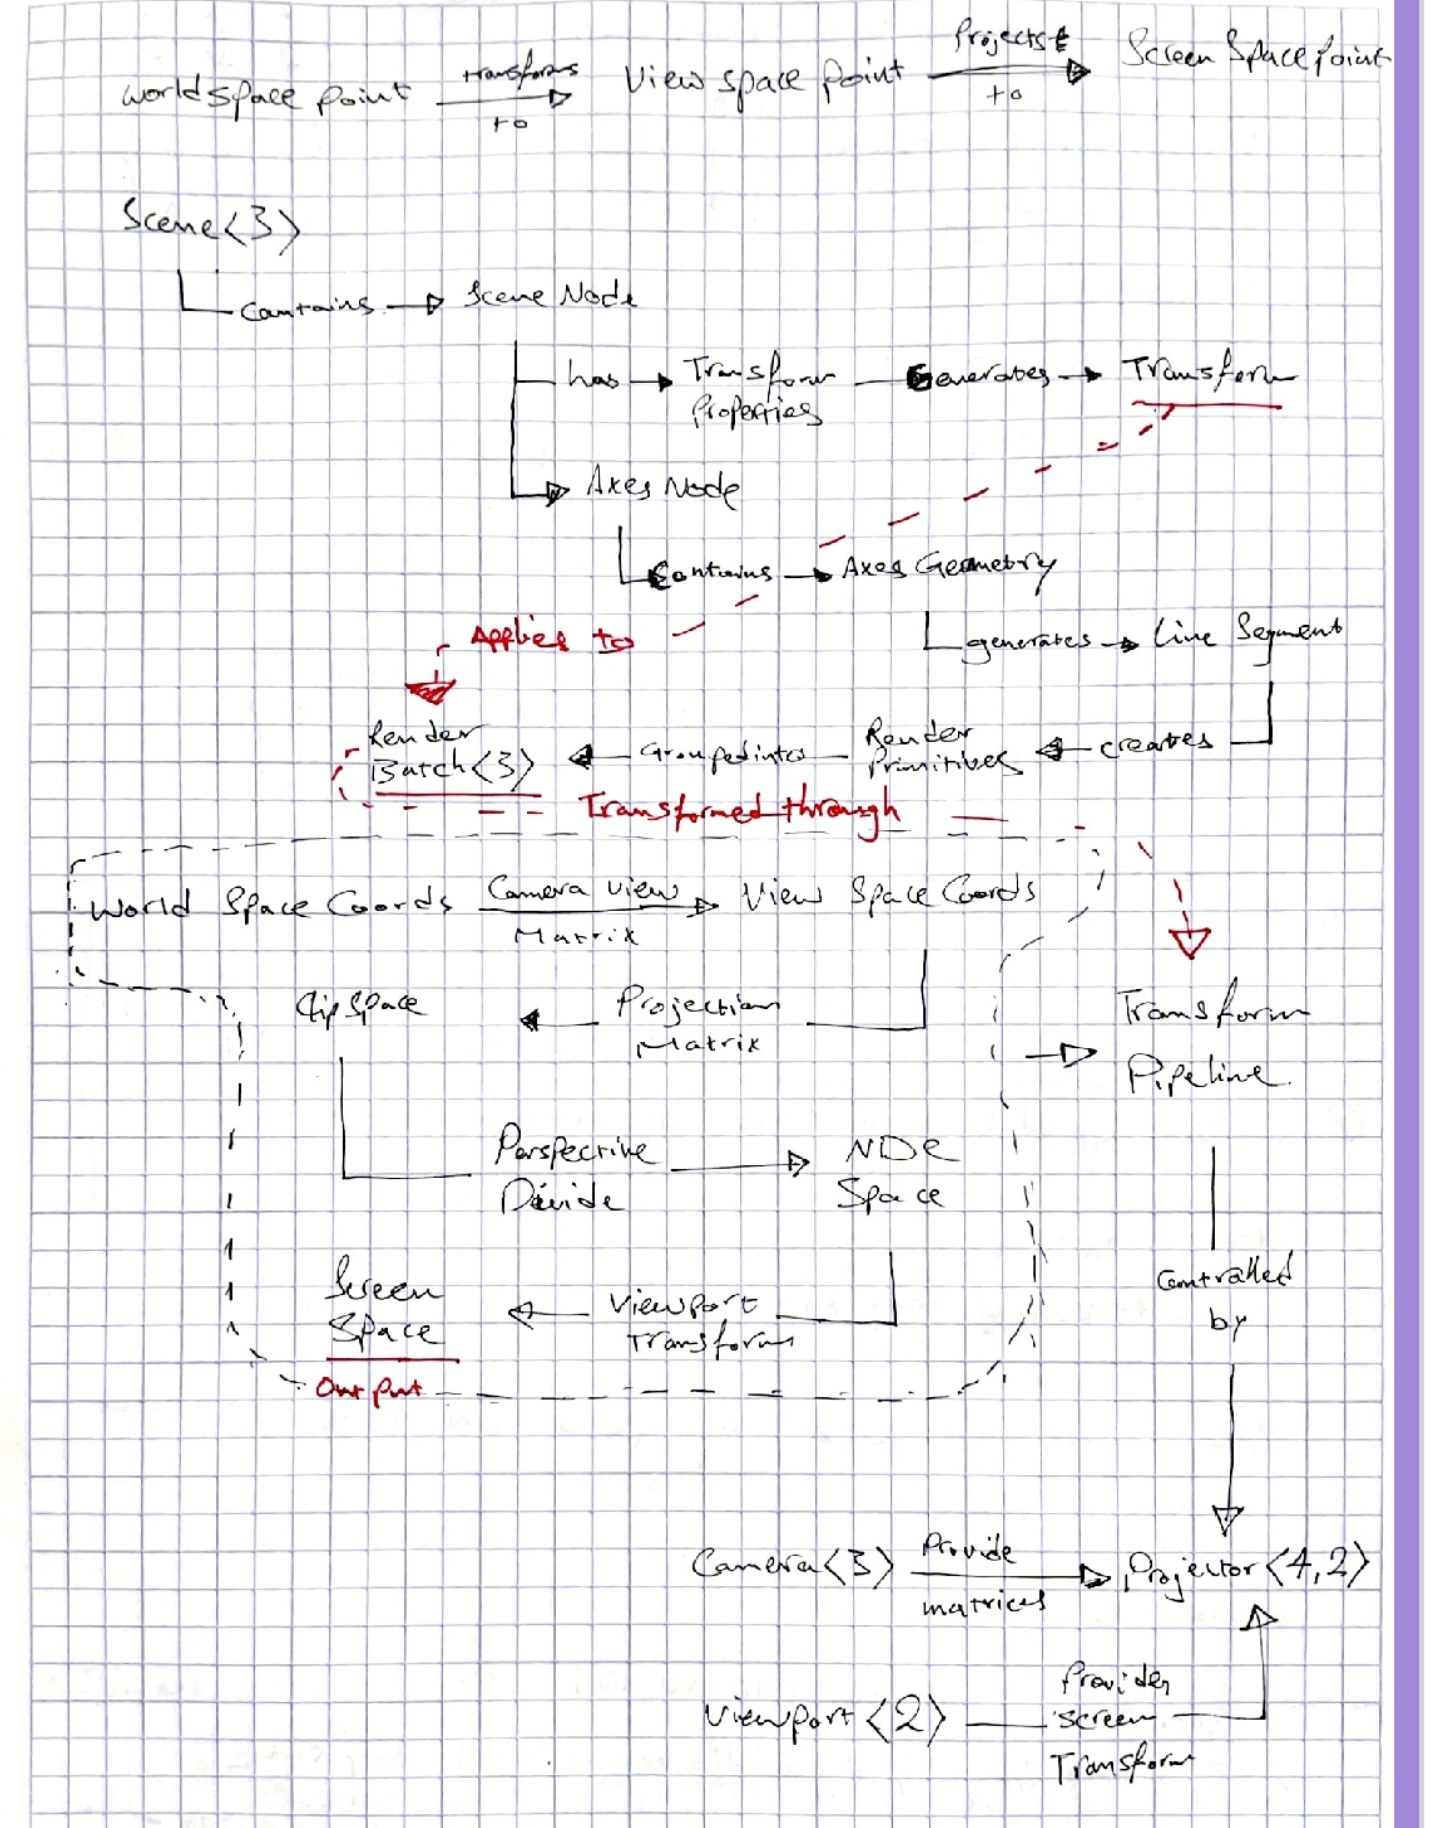 world space point transforms to View space point Projects to Screen Space point
Scene<3>
Contains Scene Node
has Transform Generates Transform
Properties
Axes Node
Contains Axes Geometry
Applies to
generates Line Segment
Render Grouped into Render creates
Batch<3> Primitives
Transformed through
World Space Coords Camera view View Space Coords
Matrix
Clip Space Projection Transform
Matrix Pipeline
Perspective NDC
Divide Space
Screen Viewport Controlled
Space Transform by
Output
Camera<3> Provide Projector<4,2>
matrices
Viewport<2> Provides
screen
Transform